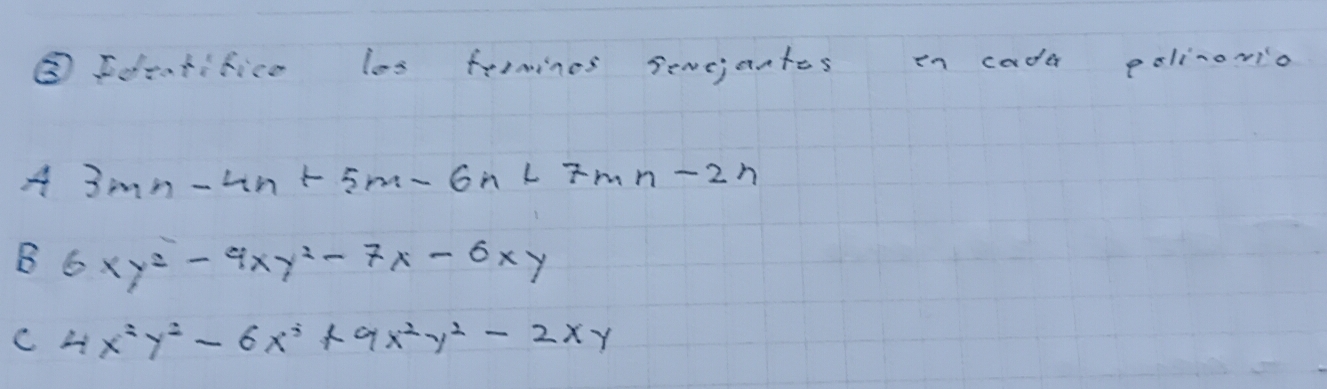 ③ Identifico los terminos semejantes en cada polinomio
A 3mn - 4n + 5m - 6n + 7mn - 2n
B 6xy² - 9xy² - 7x - 6xy
C 4x²y² - 6x³ + 9x²y² - 2xy